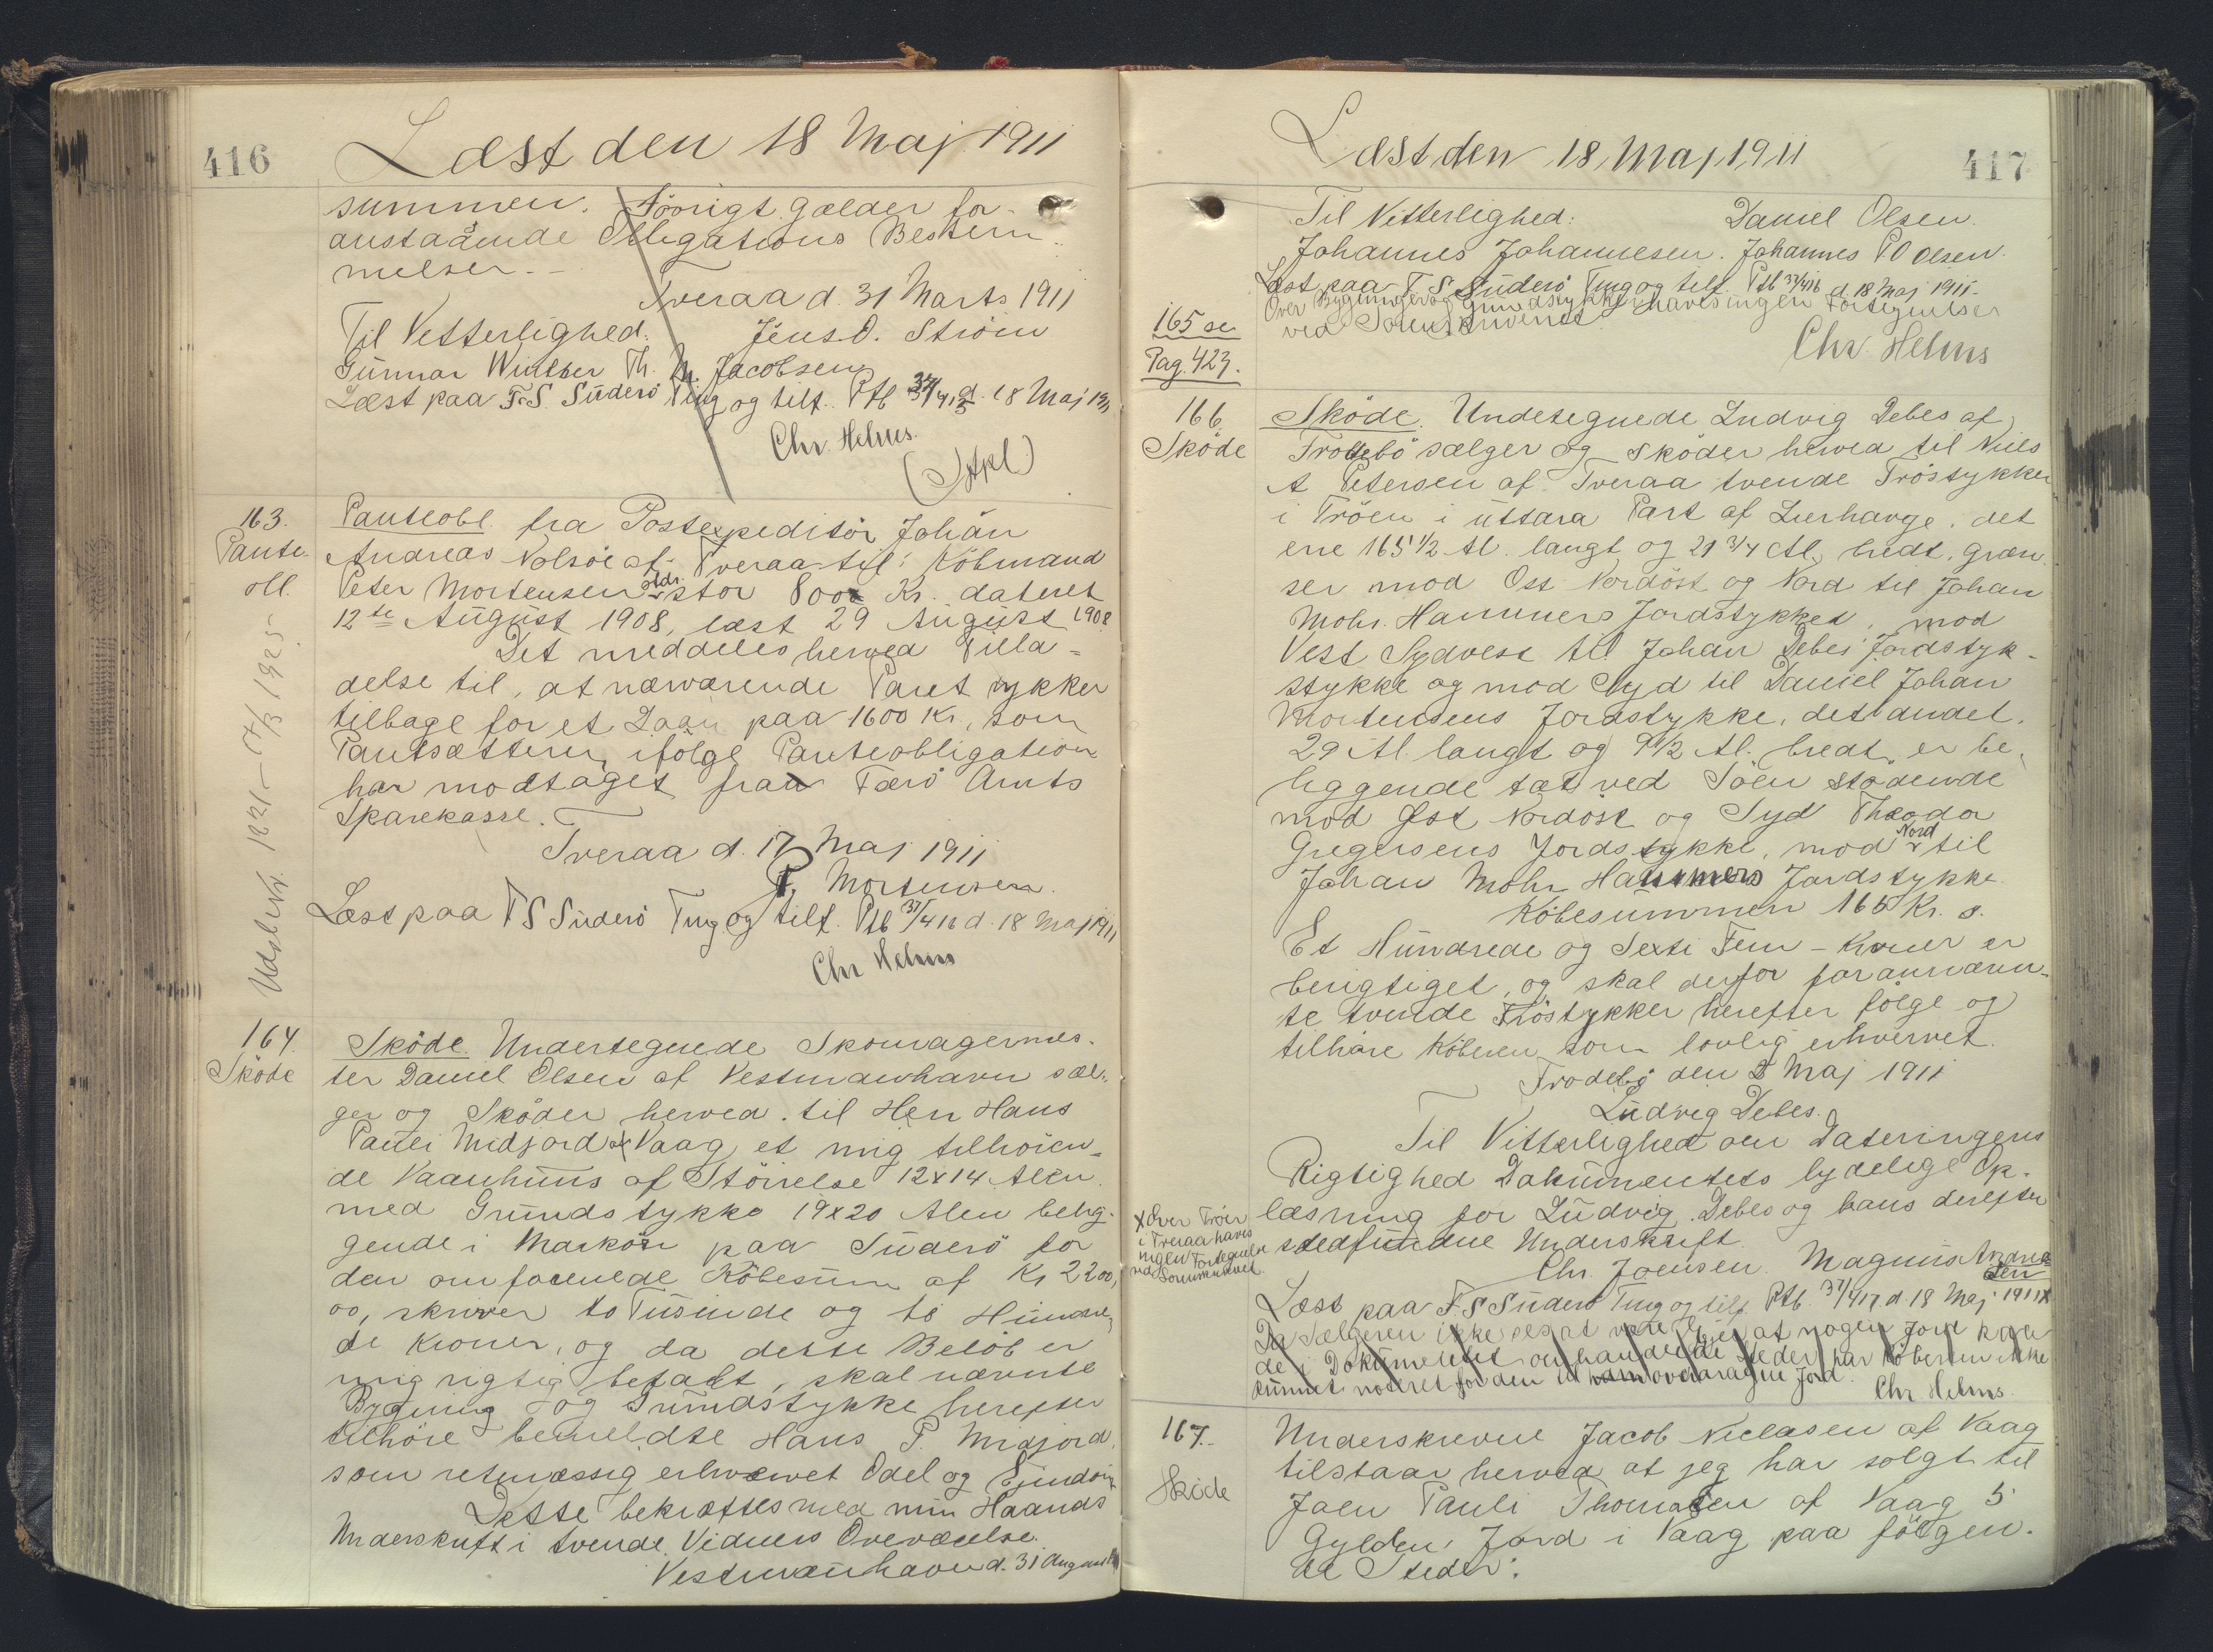 416
Læst den 18 Maj 1911
summen. Iövrigt gælder for-
anstaaende Obligations Bestem-
melser.-
Tveraa d. 31 Marts 1911
Til Vitterlighed. Jens O. Ström
Gunnar Winther Th. M. Jacobsen
Læst paa F.S. Süderö Ting og tilf. Ptb 37/415 d. 18 Maj 1911
Chr. Helms.
163.
Pante
obl.
Udslettet 1921 - 17/3 1925
Panteobl. fra Postexpeditör Johan
Andreas Nolsöe af Tveraa til: Köbmand
Peter Mortensen sldr. stor 800 Kr. dateret
12te August 1908, læst 29 August 1908
Det meddeles herved Tilla-
delse til, at nærværende Pant rykker
tilbage for et Laan paa 1600 Kr, som
Pantsætteren ifölge Panteobligation
har modtaget fra Færö Amts
Sparekasse.
Tveraa d. 17 Maj 1911
P. Mortensen.
Læst paa F S Süderö Ting og tilf. Ptb 37/416 d. 18 Maj 1911
Chr Helms
164.
Sköde
Sköde. Undertegnede Skomagermes-
ter Daniel Olsen af Vestmanhavn sæl-
ger og Sköder herved til Herr Hans
Pauli Midjord af Vaag et mig tilhören-
de Vaanhuus af Störrelse 12x14 Alen
med Grundstykke 19x20 Alen belig-
gende i Marköre paa Süderö for
den omforenede Köbesum af Kr 2200,
00, skriver to Tusinde og to Hundre-
de Kroner, og da dette Belöb er
mig rigtig betalt, skal nævnte
Bygning og Grundstykke herefter
tilhöre bemeldte Hans P. Midjord
som retmæssig erhvervet Odel og Ejendom
Dette bekræftes med min Haands
Underskrift i tvende Vidners Overværelse.
Vestmanhavn d. 31 August
417
Læst den 18 Maj 1911
Til Vitterlighed: Daniel Olsen.
Johannes Johannesen. Johannes P O Olsen.
Læst paa F. S Süderö Ting og tilf. Ptb 37/416 d 18 Maj 1911-
Over Bygninger og Grundstykke haves ingen Fortegnelser
ved Sorenskriveriet.
Chr. Helms
165 se
Pag. 423.
166.
Sköde
Sköde. Undetegnede Ludvig Debes af
Trodebö sælger og sköder herved til Niels
A Petersen af Tveraa tvende Tröstykker
i Tröen i uttara Part af Lierhavge, det
ene 165 1/2 Al. langt og 21 3/4 Al. bredt, græn-
ser mod Ost Nordöst og Nord til Johan
Mohr Hammers Jordstykket, mod
Vest Sydvest til Johan Debes' Jordstyk-
stykke og mod Syd til Daniel Johan
Mortensens Jordstykke, det andet.
29 Al. langt og 9 1/2 Al. bredt er be-
liggende tæt ved Söen stödende
mod Öst Nordöst og Syd Theodor
Gregersens Jordstykke, mod Nord til
Johan Mohr Hammers Jordstykke.
Köbesummen 165 Kr. s.
Et Hundrede og Sexti Fem - Kroner er
berigtiget, og skal derfor forannævn-
te tvende Tröstykker herefter fölge og
tilhöre Köberen som lovlig erhvervet.
Trodebö den 2 Maj 1911
Ludvig Debes.
Til Vitterlighed om Dateringens
Rigtighed Dokumentets lydelige Op-
læsning for Ludvig Debes og hans derefter
stedfundne Underskrift
Chr. Joensen. Magnus Andrea-
sen
x Over Tröer
i Tveraa haves
ingen Fortegnelse
ved Sorenskriveriet.
Læst paa F.S Süderö Ting og tilf. Ptb. 37/417 d. 18 Maj 1911 x
Da Sælgeren ikke ses at være Ejer af nogen Jord paa
de i Dokumentet omhandlede Steder har Köberen ikke
kunnet noteret for den overdragne Jord.
Chr. Helms.
167.
Sköde
Underskrevne Jacob Niclasen af Vaag
tilstaar herved at jeg har solgt til
Joen Pauli Thomasen af Vaag 5
Gylden Jord i Vaag paa fölgen-
de Steder: